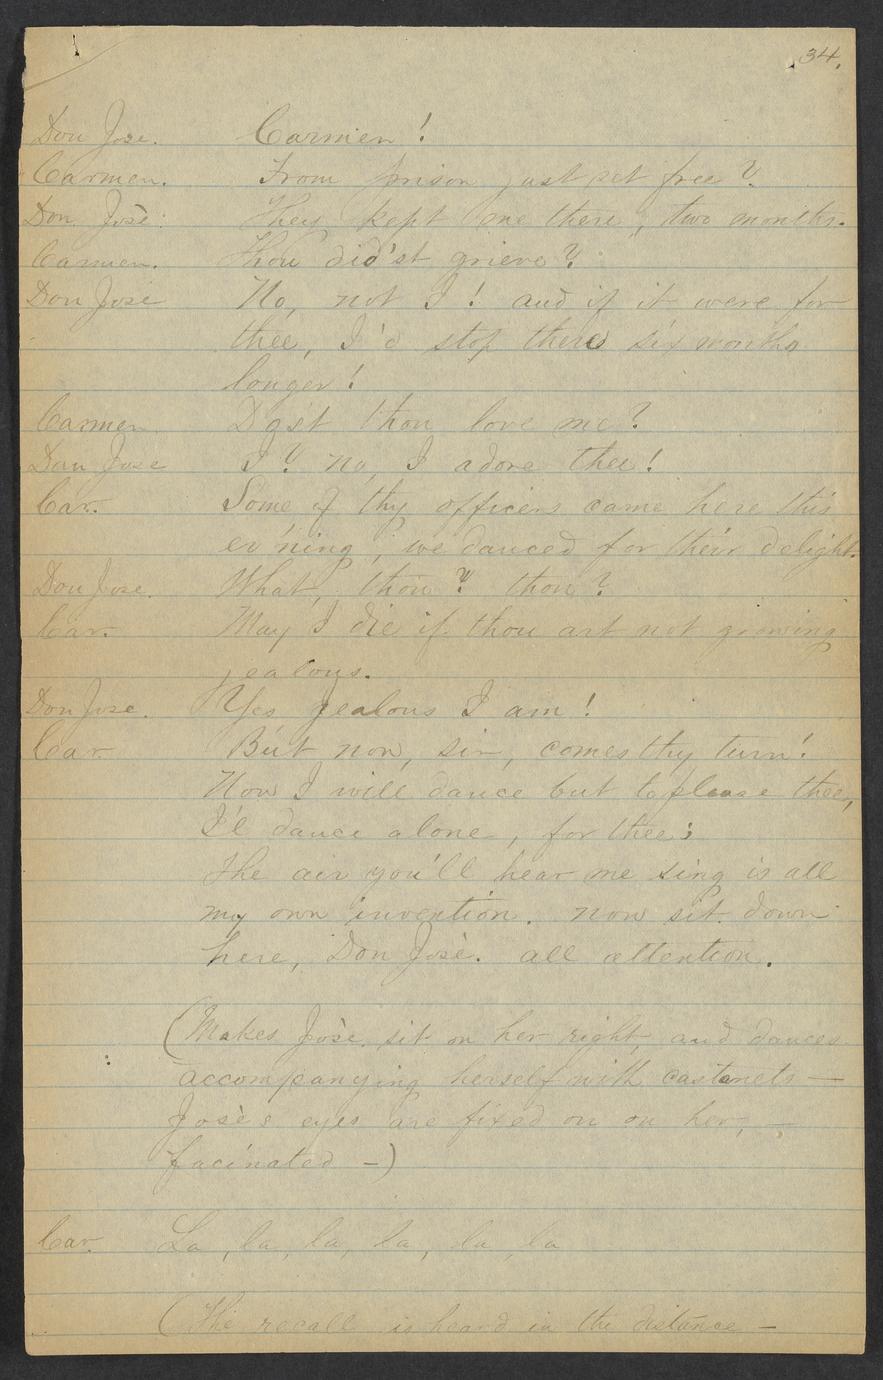 34.
Don Jose. Carmen!
Carmen. From prison just set free?
Don Josè: They kept me there, two months.
Carmen. Thou did'st grieve?
Don José No, not I! and if it were for
thee, I'd stop there six months
longer!
Carmen Dost thou love me?
Don Jose I? no, I adore thee!
Car. Some of thy officers came here this
ev'ning; we danced for their delight.
Don Jose. What, thou? thou?
Car. May I die if thou art not growing
jealous.
Don Jose. Yes jealous I am!
Car. But now, sir, comes thy turn!
Now I will dance but to please thee,
I'l dance alone, for thee;
The air you'll hear me sing is all
my own invention. now sit down
here, Don Josè. all attention.
(Makes Josè. sit on her right, and dances
accompanying herself with castanets —
Josè's eyes are fixed on on her, —
facinated —)
Car. La, la, la, la, la, la
(The recall is heard in the distance —